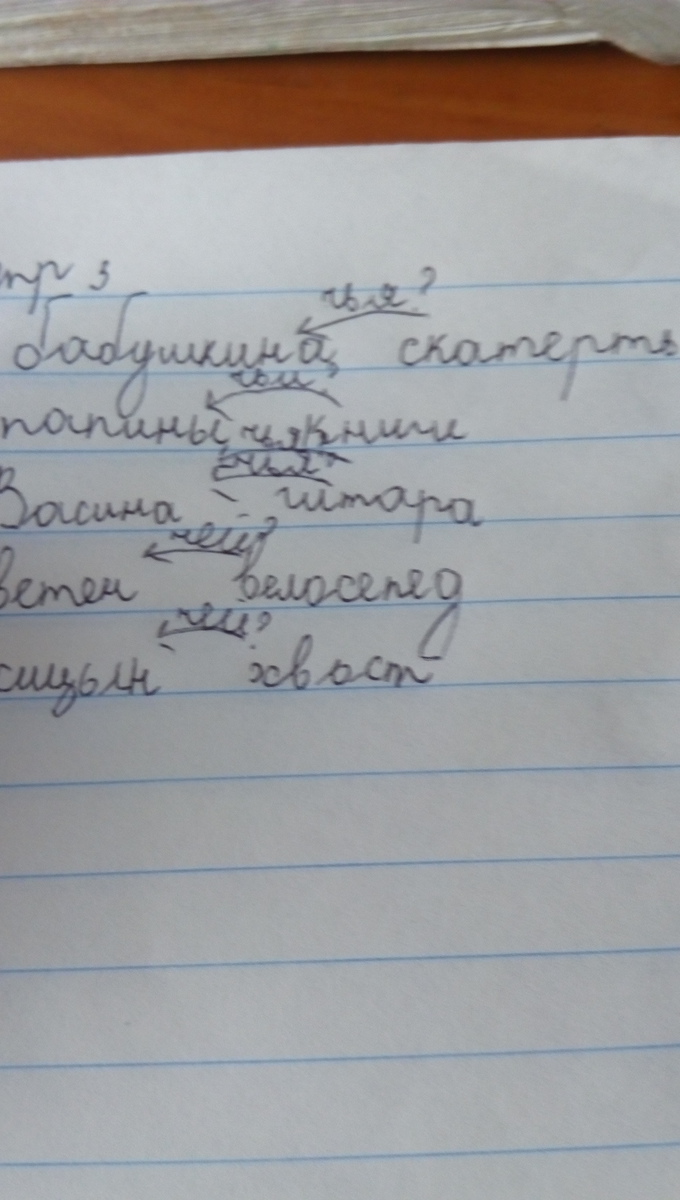 стр 3
чья?
бабушкина скатерть
чьи?
папины книги
чья?
Васина гитара
чей?
ветен велосепед
чей?
сицын хвост